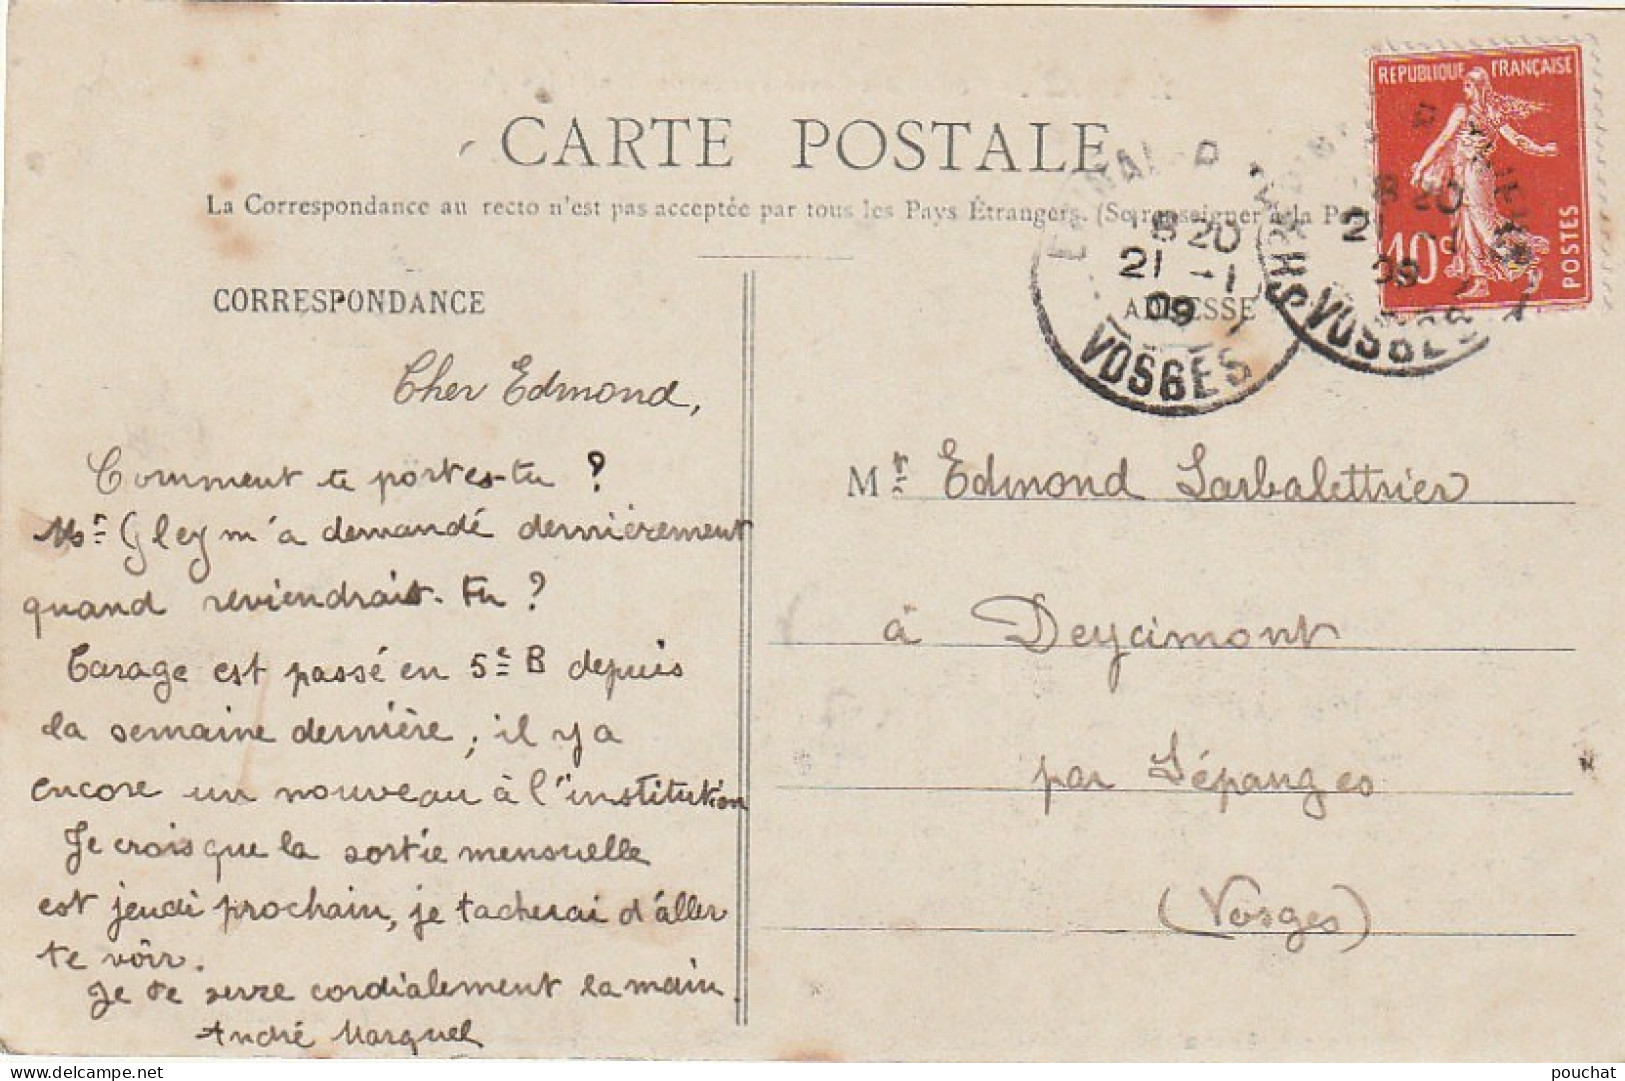 REPUBLIQUE FRANÇAISE
10c
POSTES
CARTE POSTALE
La Correspondance au recto n'est pas acceptée par tous les Pays Étrangers. (Se renseigner à la Poste
8 20
21 - 1
09
VOSGES
20
21
09
VOSGES
CORRESPONDANCE
ADRESSE
Cher Edmond,
Comment te portes-tu ?
Mr Gley m'a demandé dernièrement
quand reviendrais-tu ?
Carage est passé en 5e B depuis
la semaine dernière ; il y a
encore un nouveau à l'institution
Je crois que la sortie mensuelle
est jeudi prochain, je tacherai d'âller
te voir.
Je te serre cordialement la main.
André Marquel
Mr Edmond Larbalettrier
à Deycimont
par Lépanges
(Vosges)
delcampe.net
pouchat